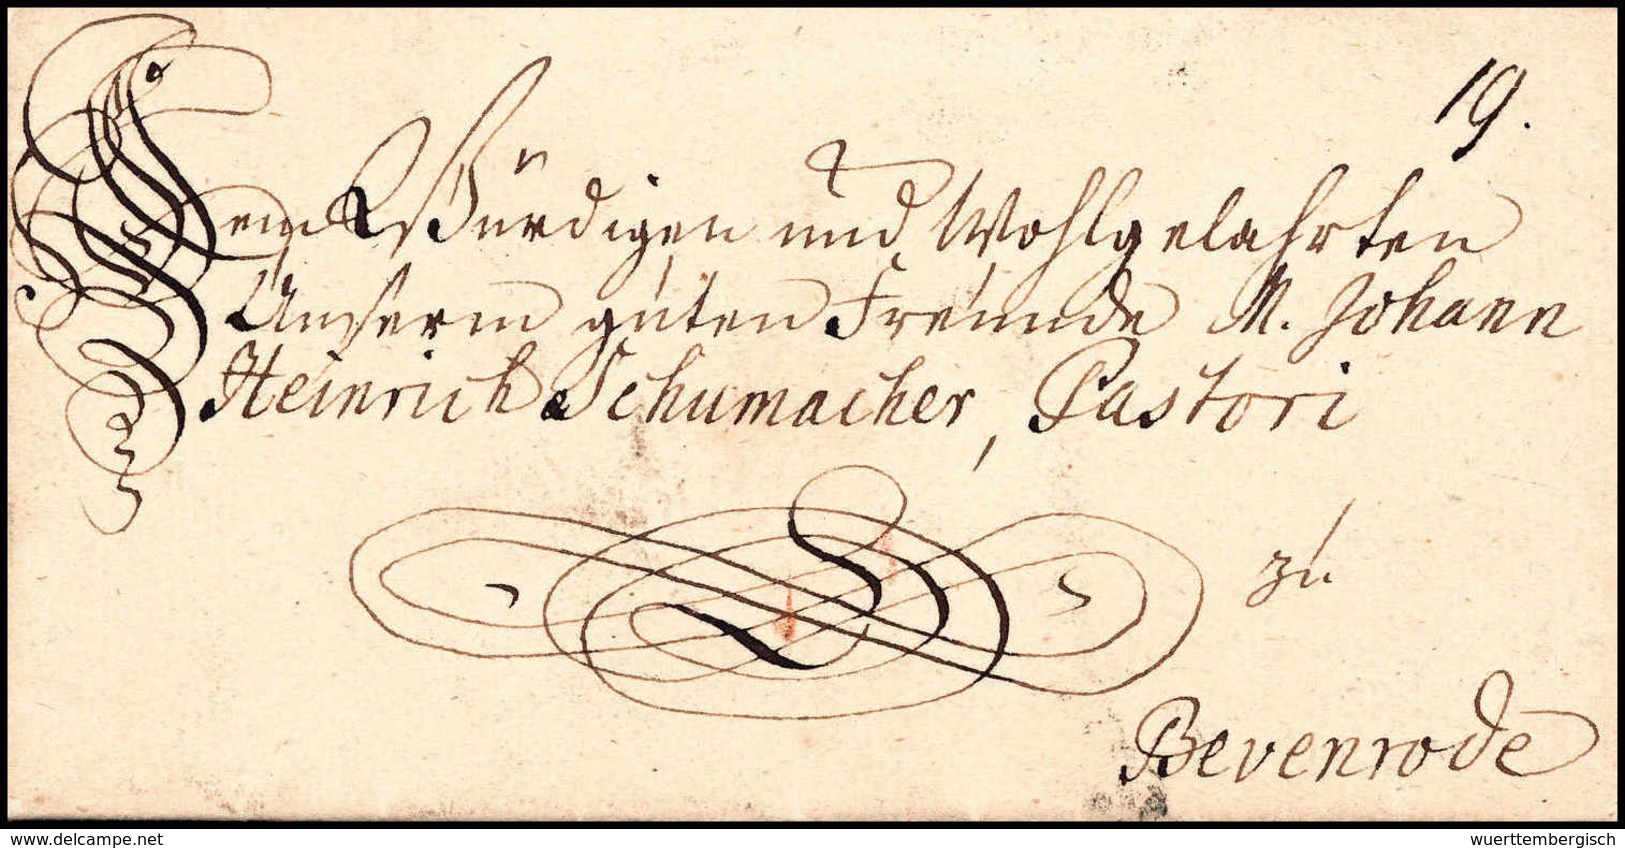 19.
Dem Würdigen und Wohlgelahrten
Unserm guten Freunde M. Johann
Heinrich Schumacher, Pastori
zu
Bevenrode
www.delcampe.net
wuerttembergisch